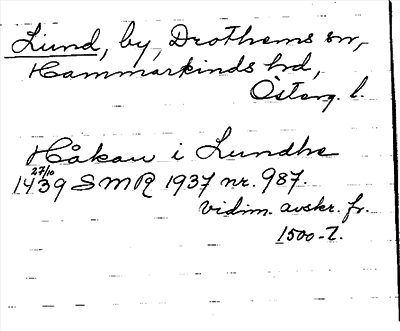 Lund, by, Drothems sn,
Hammarkinds hd,
Östeng. l.
Håkan i Lundhe
27/10
1439 SMR 1937 nr. 987.
vidim. avskr. fr.
1500-T.